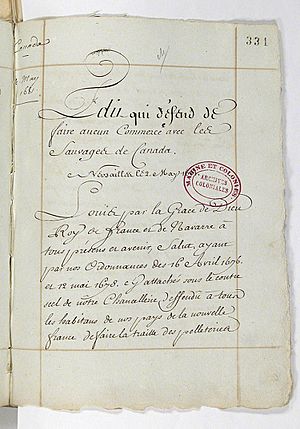 Canada
331
2 May
168
Edit qui défend de
faire aucun Commerce avec les
Sauvages de Canada.
Versailles le 2 May
MARINE ET COLONIES
ARCHIVES
COLONIALES
Louis par la Grace de Dieu
Roy de france et de Navarra a
tous presens et avenir, Salut, ayant
par nos Ordonnances des 16 Avril 1676
et 12 mai 1678. cy attachés sous le contre
scel de nôtre Chancellerie deffendu a tous
les habitans de nos pays de la nouvelle
france de faire la traitte des pelleteries